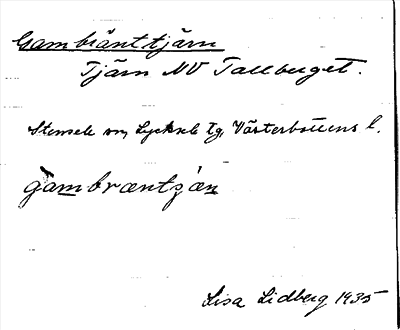 Gambränttjärn
Tjärn NV Tallberget.
Stensele sn, Lycksele tg, Västerbottens l.
gambræntʒæn
Lisa Lidberg 1935